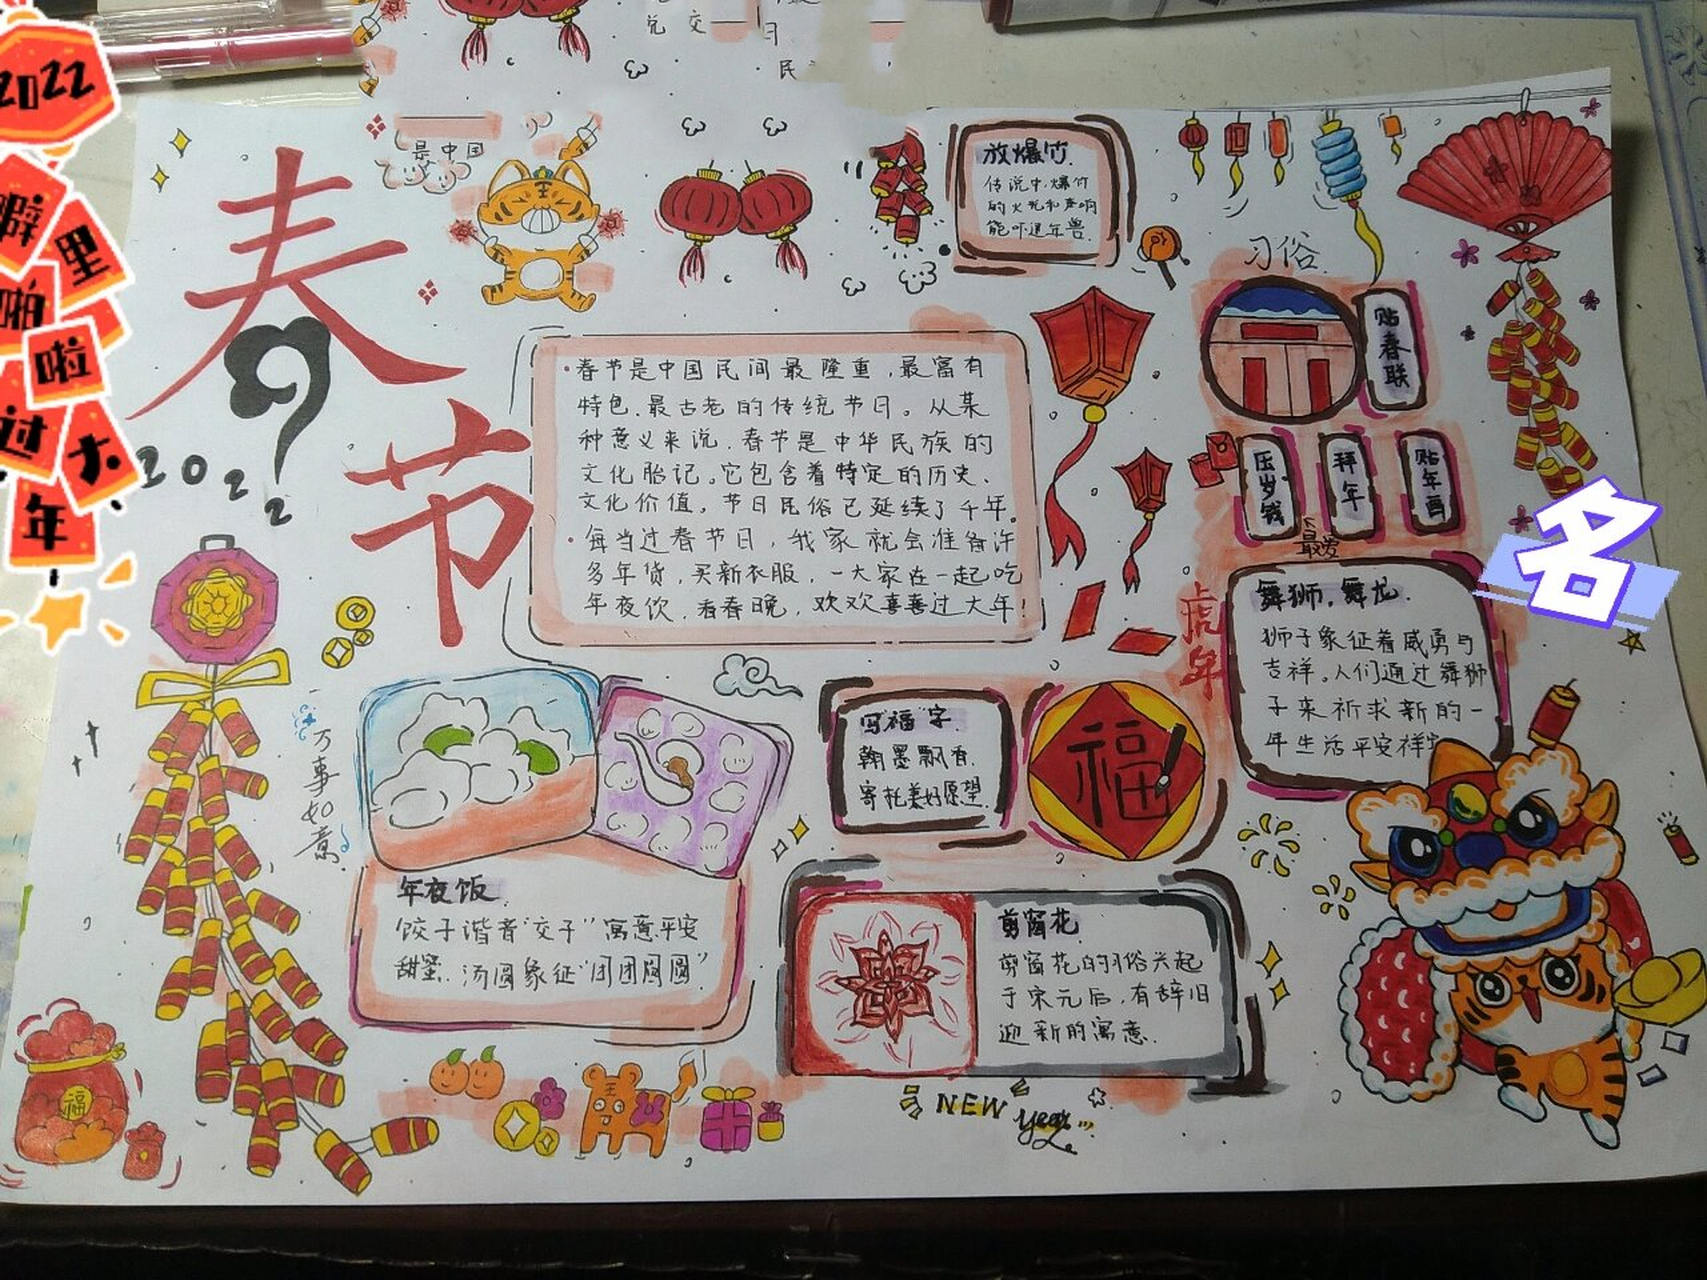 2022
噼里
啪啦
过大
年
兑交
民
是中国
春节
2022
放爆竹
传说中,爆竹
的火光和声响
能吓退年兽
习俗
贴春联
压岁钱
拜年
贴年画
最爱
·春节是中国民间最隆重,最富有
特色.最古老的传统节日。从某
种意义来说.春节是中华民族的
文化胎记。它包含着特定的历史、
文化价值,节日民俗已延续了千年。
·每当过春节日,我家就会准备许
多年货,买新衣服,一大家在一起吃
年夜饮.看春晚,欢欢喜喜过大年!
虎年
名
舞狮,舞龙.
狮子象征着威勇与
吉祥。人们通过舞狮
子来祈求新的一
年生活平安祥
万事如意
写"福"字
翰墨飘香.
寄托美好愿望
福
年夜饭
饺子谐音"交子"寓意平安
甜蜜.汤圆象征"团团圆圆"
剪窗花
剪窗花的习俗兴起
于宋元后,有辞旧
迎新的寓意.
福
NEW year